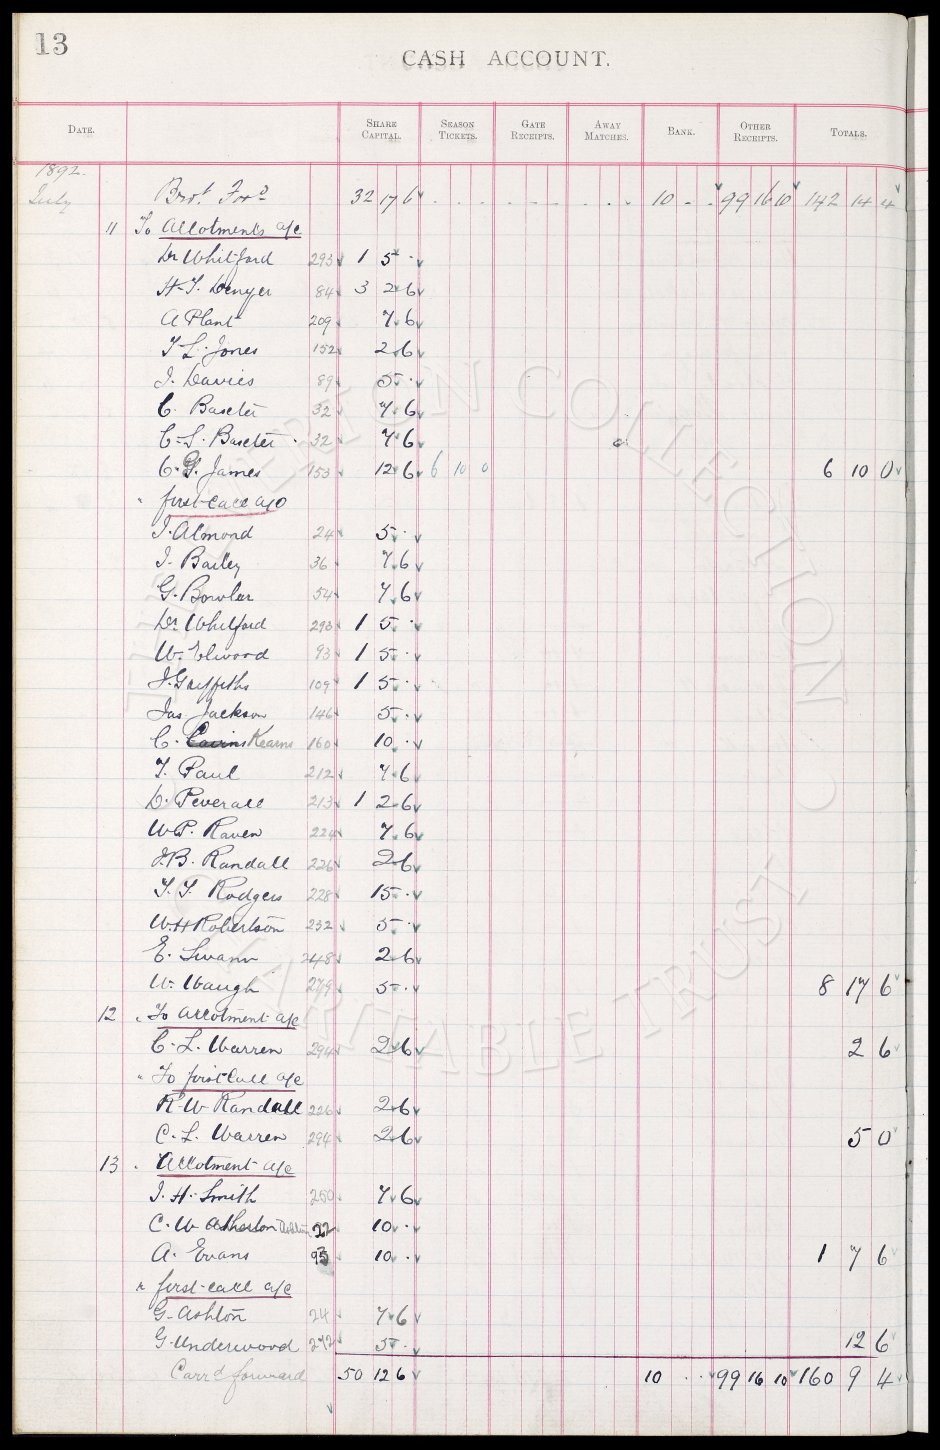 13
CASH ACCOUNT.
DATE. SHARE CAPITAL. SEASON TICKETS. GATE RECEIPTS. AWAY MATCHES. BANK. OTHER RECEIPTS. TOTALS.
1892.
July Brot. Ford 32 17 6 10 - - 99 16 10 142 14 4
11 To Allotments a/c
Dr Whitford 293 1 5 -
H. T. Denyer 84 3 2 6
A Plant 209 7 6
T. L. Jones 152 2 6
J. Davies 89 5 -
C. Baxter 32 7 6
C. S. Baxter 32 7 6
C. G. James 153 12 6 6 10 0 6 10 0
" first call a/c
J. Almond 24 5 -
J. Bailey 36 7 6
G. Bowler 54 7 6
Dr. Whitford 293 1 5 -
W. Elwood 93 1 5 -
J. Griffiths 109 1 5 -
Jas Jackson 146 5 -
C. Kearns 160 10 -
T. Paul 212 7 6
D. Peverall 213 1 2 6
W.P. Raven 224 7 6
J.B. Randall 226 2 6
T. T. Rodgers 228 15 -
W.H Robertson 232 5 -
E. Swann 248 2 6
W. Waugh 279 5 - 8 17 6
12 " To allotment a/c
C. L. Warren 294 2 6 2 6
" To first Call a/c
R. W Randall 226 2 6
C. L. Warren 294 2 6 5 0
13 " Allotment a/c
J. H. Smith 250 7 6
C. W Atherton 22 10 -
A. Evans 95 10 - 1 7 6
" first call a/c
G. Ashton 24 7 6
G. Underwood 272 5 - 12 6
Carrd forward 50 12 6 10 - - 99 16 10 160 9 4
THE EVERTON COLLECTION ©
CHARITABLE TRUST